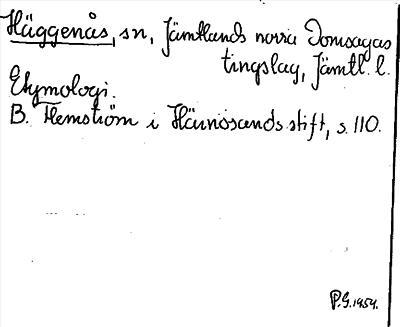 Häggenås, sn, Jämtlands norra Domsagas
tingslag, Jämtl. l.
Etymologi.
B. Flemström i Härnösands stift, s. 110.
P.G. 1954.